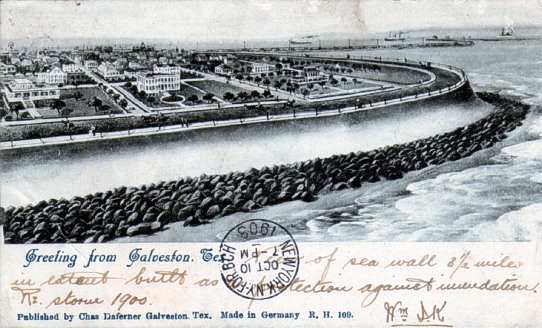 Greeting from Galveston. Tex. of sea wall 3½ miles
in extent built as protection against inundation.
storm 1900.
NEW YORK, N.Y. FOR. BCH
OCT 10
7-PM
1903
Published by Chas Daferner Galveston. Tex. Made in Germany R. H. 109.